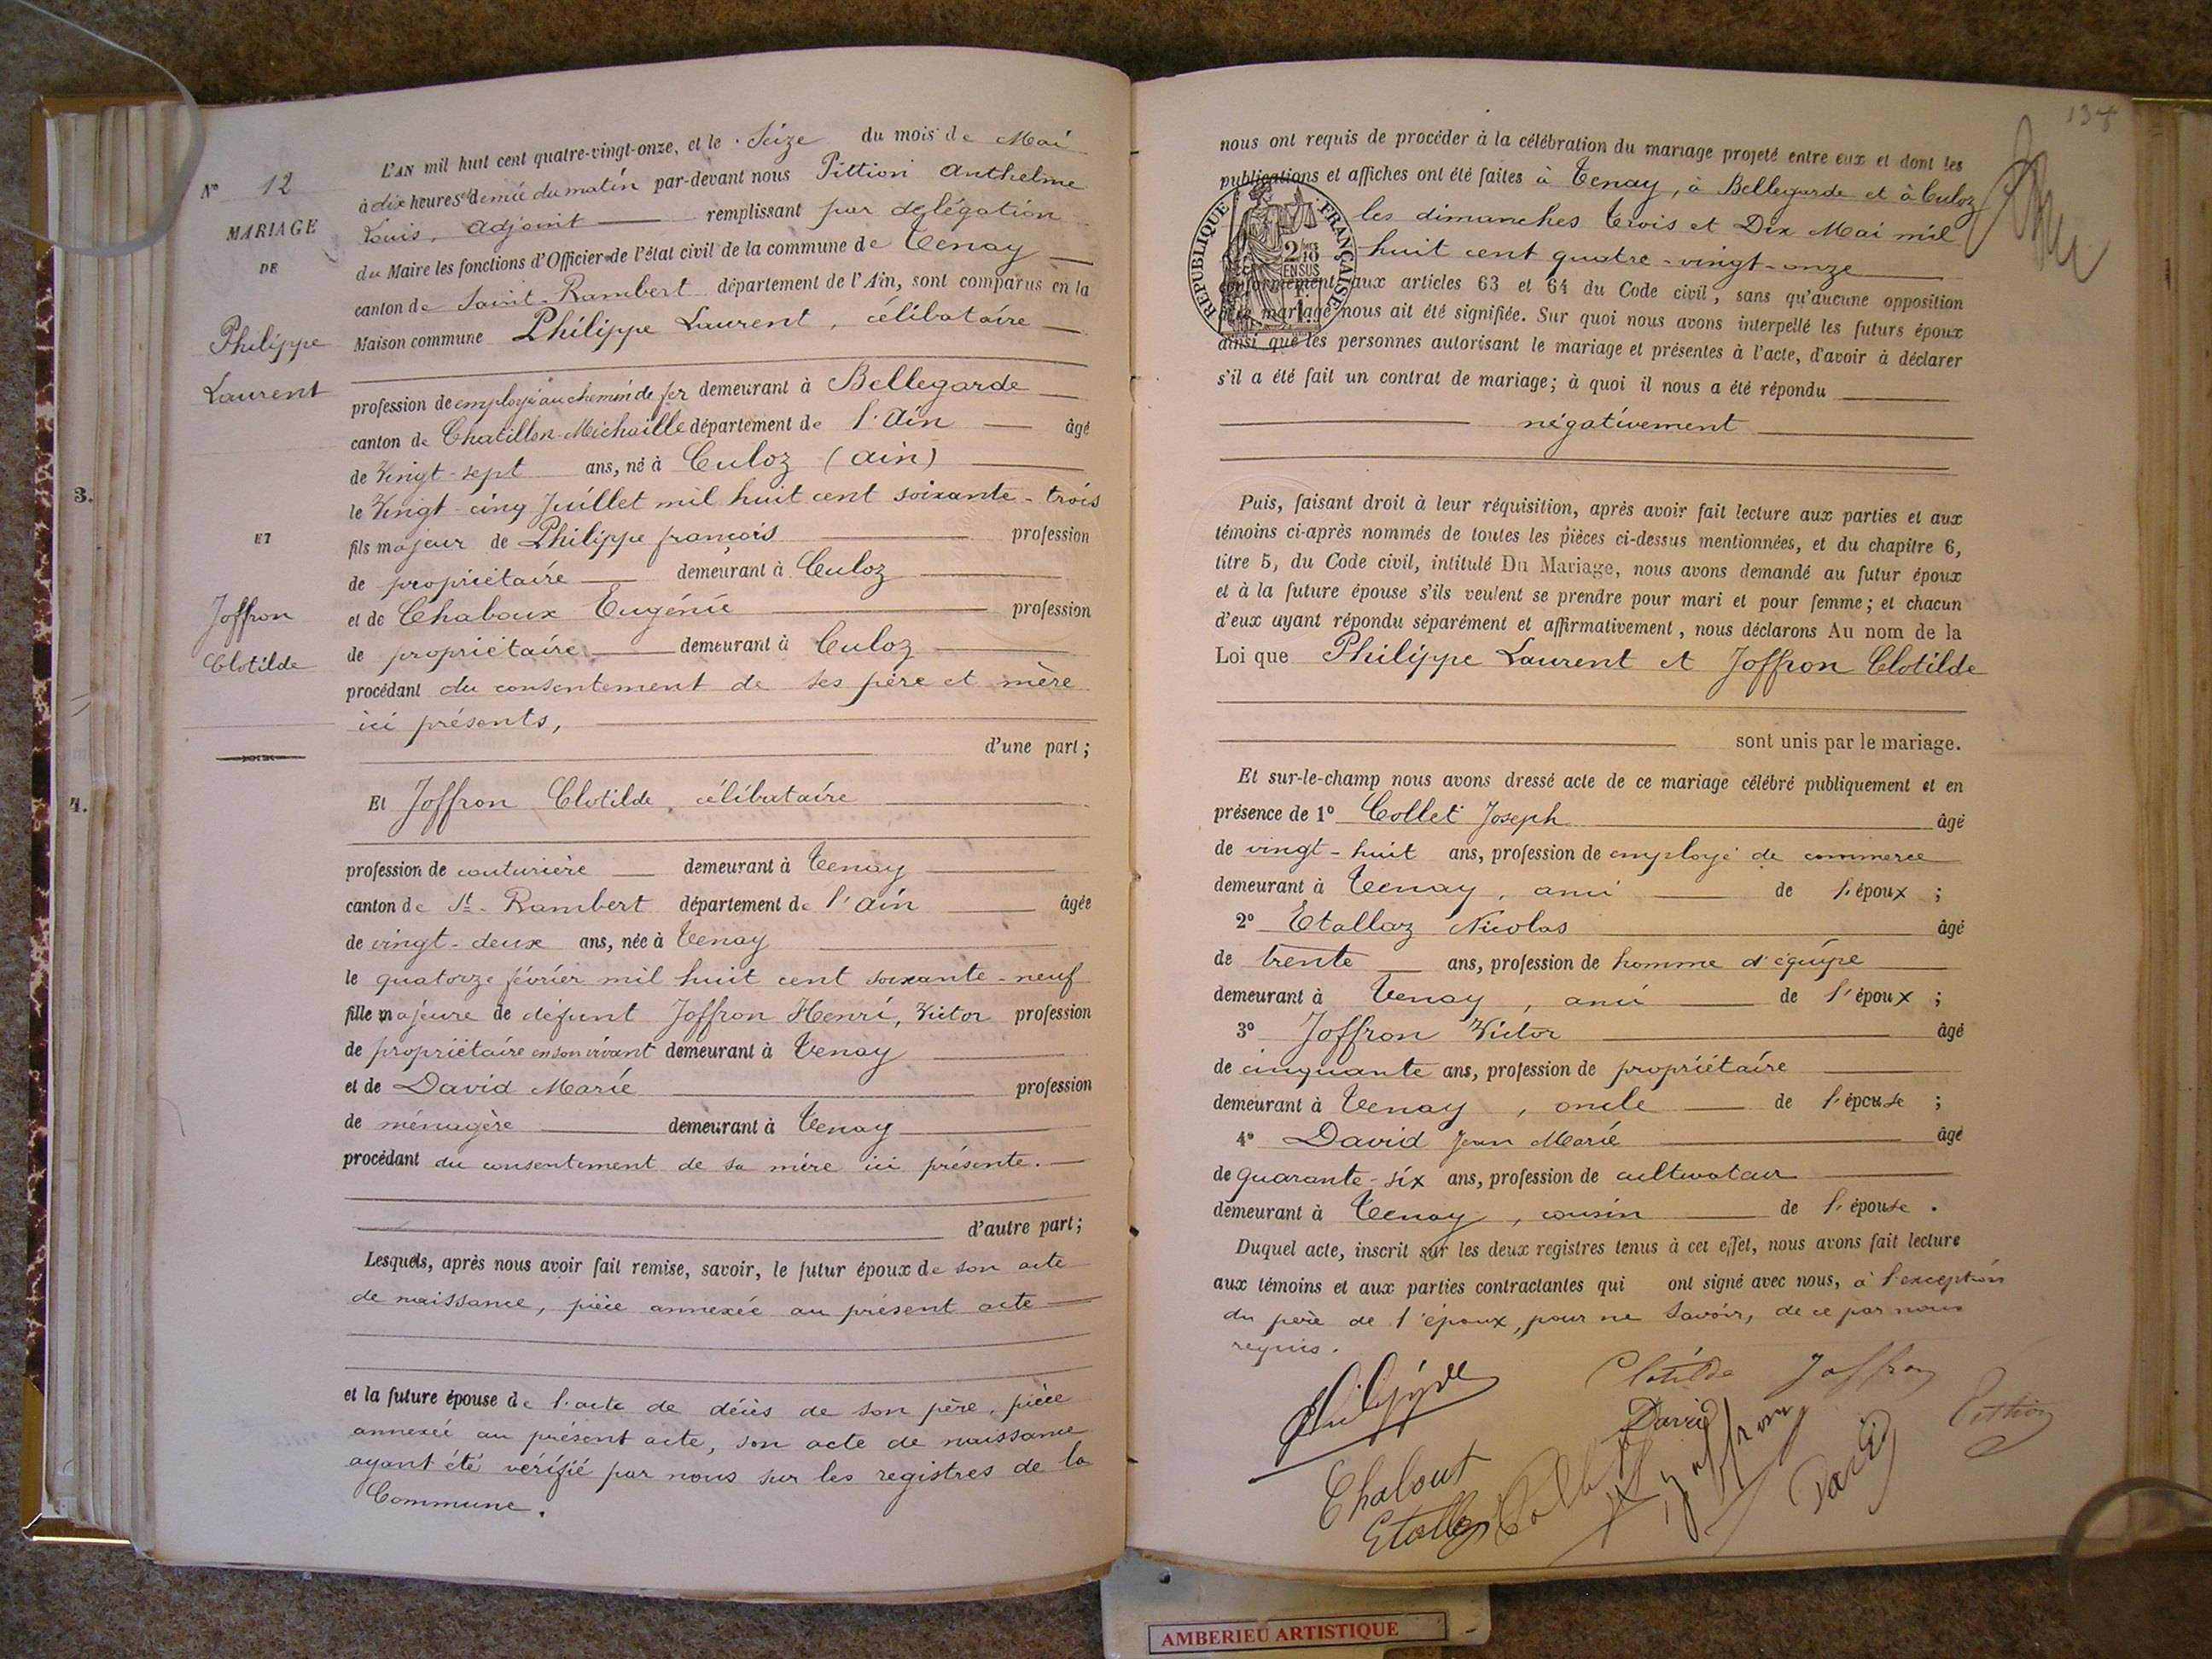 N° 12
MARIAGE
DE
Philippe
Laurent
ET
Joffron
Clotilde
3.
4.
L'AN mil huit cent quatre-vingt-onze, et le Seize du mois de Mai
à dix heures et demie du matin par-devant nous Pittion Anthelme
Louis, Adjoint remplissant par délégation
du Maire les fonctions d'Officier de l'état civil de la commune de Tenay
canton de Saint-Rambert département de l'Ain, sont comparus en la
Maison commune Philippe Laurent, célibataire
profession de employé au chemin de fer demeurant à Bellegarde
canton de Chatillon-Michaille département de l'Ain âgé
de Vingt-sept ans, né à Culoz (Ain)
le Vingt-cinq Juillet mil huit cent soixante-trois
fils majeur de Philippe françois profession
de propriétaire demeurant à Culoz
et de Chaboux Eugénie profession
de propriétaire demeurant à Culoz
procédant du consentement de ses père et mère
ici présents,
d'une part;
Et Joffron Clotilde, célibataire
profession de couturière demeurant à Tenay
canton de St-Rambert département de l'Ain âgée
de vingt-deux ans, née à Tenay
le quatorze février mil huit cent soixante-neuf
fille majeure de défunt Joffron Henri, Victor profession
de propriétaire en son vivant demeurant à Tenay
et de David Marie profession
de ménagère demeurant à Tenay
procédant du consentement de sa mère ici présente.
d'autre part;
Lesquels, après nous avoir fait remise, savoir, le futur époux de son acte
de naissance, pièce annexée au présent acte
et la future épouse de l'acte de décès de son père, pièce
annexée au présent acte, son acte de naissance
ayant été vérifié par nous sur les registres de la
Commune.
137
nous ont requis de procéder à la célébration du mariage projeté entre eux et dont les
publications et affiches ont été faites à Tenay, à Bellegarde et à Culoz
les dimanches Trois et Dix Mai mil
huit cent quatre-vingt-onze
conformément aux articles 63 et 64 du Code civil, sans qu'aucune opposition
mariage nous ait été signifiée. Sur quoi nous avons interpellé les futurs époux
ainsi que les personnes autorisant le mariage et présentes à l'acte, d'avoir à déclarer
s'il a été fait un contrat de mariage; à quoi il nous a été répondu
négativement
RÉPUBLIQUE FRANÇAISE
2/10
EN SUS
Puis, faisant droit à leur réquisition, après avoir fait lecture aux parties et aux
témoins ci-après nommés de toutes les pièces ci-dessus mentionnées, et du chapitre 6,
titre 5, du Code civil, intitulé Du Mariage, nous avons demandé au futur époux
et à la future épouse s'ils veulent se prendre pour mari et pour femme; et chacun
d'eux ayant répondu séparément et affirmativement, nous déclarons Au nom de la
Loi que Philippe Laurent et Joffron Clotilde
sont unis par le mariage.
Et sur-le-champ nous avons dressé acte de ce mariage célébré publiquement et en
présence de 1° Collet Joseph âgé
de vingt-huit ans, profession de employé de commerce
demeurant à Tenay, ami de l'époux;
2° Etallaz Nicolas âgé
de trente ans, profession de homme d'équipe
demeurant à Tenay, ami de l'époux;
3° Joffron Victor âgé
de cinquante ans, profession de propriétaire
demeurant à Tenay, oncle de l'épouse;
4° David Jean Marie âgé
de quarante-six ans, profession de cultivateur
demeurant à Tenay, cousin de l'épouse.
Duquel acte, inscrit sur les deux registres tenus à cet effet, nous avons fait lecture
aux témoins et aux parties contractantes qui ont signé avec nous, à l'exception
du père de l'époux, pour ne savoir, de ce par nous
requis.
Philippe Clotilde Joffron
David Pittion
Chaboux Joffron David
Etallaz Collet
AMBERIEU ARTISTIQUE